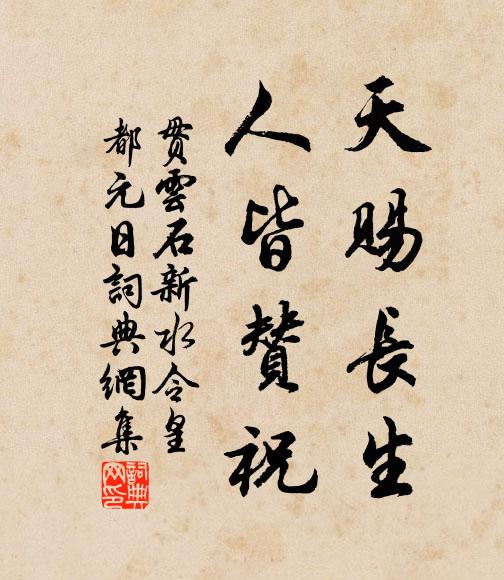 天賜長生
人皆贊祝
貫雲石新水令皇
都元日詞典網集
詞典
网印